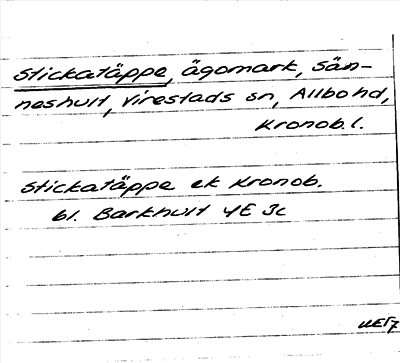 Stickatäppe, ägomark, Sän-
neshult, Virestads sn, Allbo hd,
Kronob. l.
Stickatäppe ek Kronob.
bl. Barkhult 4E 3c